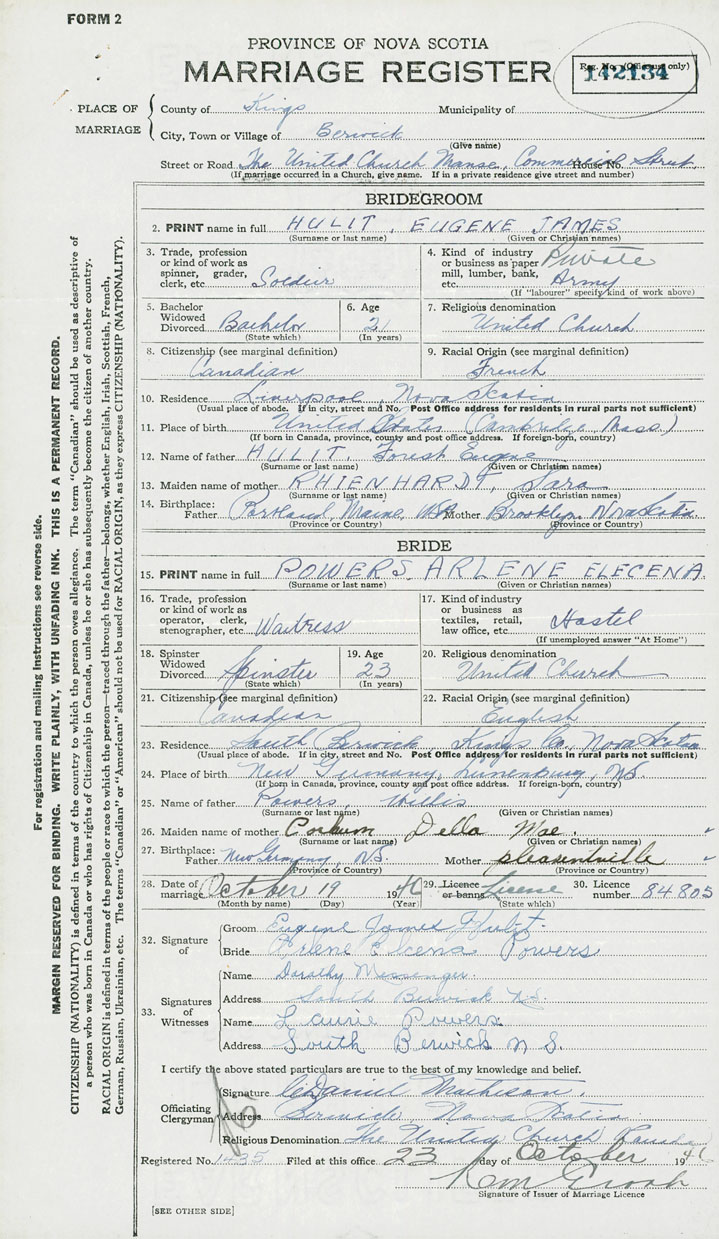 FORM 2
PROVINCE OF NOVA SCOTIA
MARRIAGE REGISTER
Reg. No. (Office use only)
142134
PLACE OF MARRIAGE
County of Kings Municipality of
City, Town or Village of Berwick
(Give name)
Street or Road The United Church Manse, Commercial Street House No.
(If marriage occurred in a Church, give name. If in a private residence give street and number)
BRIDEGROOM
2. PRINT name in full HULIT, EUGENE JAMES
(Surname or last name) (Given or Christian names)
3. Trade, profession or kind of work as spinner, grader, clerk, etc. Soldier
4. Kind of industry or business as paper mill, lumber, bank, etc. Private Army
(If "labourer" specify kind of work above)
5. Bachelor Widowed Divorced Bachelor
(State which)
6. Age 21
(In years)
7. Religious denomination
United Church
8. Citizenship (see marginal definition)
Canadian
9. Racial Origin (see marginal definition)
French
10. Residence Liverpool, Nova Scotia
(Usual place of abode. If in city, street and No. Post Office address for residents in rural parts not sufficient)
11. Place of birth United States (Cambridge, Mass.)
(If born in Canada, province, county and post office address. If foreign-born, country)
12. Name of father HULIT, Forest Eugene
(Surname or last name) (Given or Christian names)
13. Maiden name of mother RHIENHARDT, Sara
(Surname or last name) (Given or Christian names)
14. Birthplace: Father Portland, Maine, USA Mother Brooklyn, Nova Scotia
(Province or Country) (Province or Country)
BRIDE
15. PRINT name in full POWERS, ARLENE ELECENA
(Surname or last name) (Given or Christian names)
16. Trade, profession or kind of work as operator, clerk, stenographer, etc. Waitress
17. Kind of industry or business as textiles, retail, law office, etc. Hostel
(If unemployed answer "At Home")
18. Spinster Widowed Divorced Spinster
(State which)
19. Age 23
(In years)
20. Religious denomination
United Church
21. Citizenship (see marginal definition)
Canadian
22. Racial Origin (see marginal definition)
English
23. Residence South Berwick, Kings Co, Nova Scotia
(Usual place of abode. If in city, street and No. Post Office address for residents in rural parts not sufficient)
24. Place of birth New Germany, Lunenburg, NS.
(If born in Canada, province, county and post office address. If foreign-born, country)
25. Name of father Powers, Willis
(Surname or last name) (Given or Christian names)
26. Maiden name of mother Della Mae.
(Surname or last name) (Given or Christian names)
27. Birthplace: Father New Germany, N.S. Mother pleasentville
(Province or Country) (Province or Country)
28. Date of marriage October 19 1946
(Month by name) (Day) (Year)
29. Licence or banns License
(State which)
30. Licence number 84805
32. Signature of
Groom Eugene James Hulit.
Bride Arlene Elecena Powers
33. Signatures of Witnesses
Name Dorothy Messenger.
Address South Berwick N.S.
Name Laurie Powers.
Address South Berwick N S.
I certify the above stated particulars are true to the best of my knowledge and belief.
Officiating Clergyman
Signature Daniel Matheson.
Address Berwick, Nova Scotia
Religious Denomination The United Church Canada
Registered No. 1435 Filed at this office 23 day of October 1946
Signature of Issuer of Marriage Licence
[SEE OTHER SIDE]
For registration and mailing instructions see reverse side.
MARGIN RESERVED FOR BINDING. WRITE PLAINLY, WITH UNFADING INK. THIS IS A PERMANENT RECORD.
CITIZENSHIP (NATIONALITY) is defined in terms of the country to which the person owes allegiance. The term "Canadian" should be used as descriptive of
a person who was born in Canada or who has rights of Citizenship in Canada, unless he or she has subsequently become the citizen of another country.
RACIAL ORIGIN is defined in terms of the people or race to which the person—traced through the father—belongs, whether English, Irish, Scottish, French,
German, Russian, Ukrainian, etc. The terms "Canadian" or "American" should not be used for RACIAL ORIGIN, as they express CITIZENSHIP (NATIONALITY).